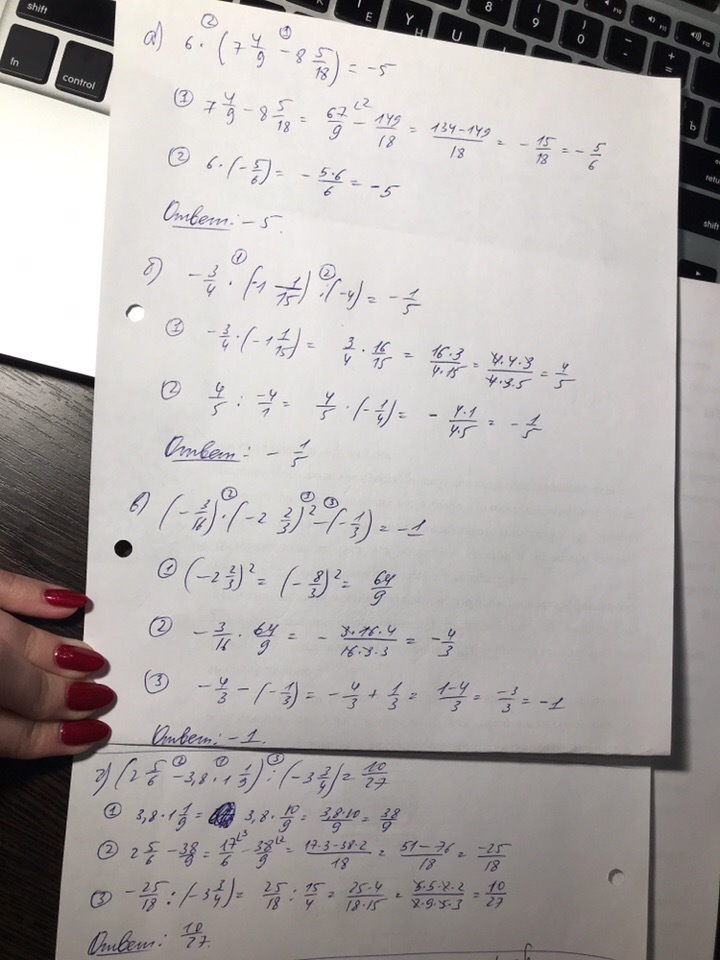 а) 6 · (7 4/9 - 8 5/18) = -5
① 7 4/9 - 8 5/18 = 67/9 - 149/18 = 134-149/18 = - 15/18 = - 5/6
② 6 · (- 5/6) = - 5·6/6 = -5
Ответ: -5.
б) - 3/4 · (-1 1/15) : (-4) = - 1/5
① - 3/4 · (-1 1/15) = 3/4 · 16/15 = 16·3/4·15 = 4·4·3/4·3·5 = 4/5
② 4/5 : -4/1 = 4/5 · (- 1/4) = - 4·1/4·5 = - 1/5
Ответ: - 1/5
в) (- 3/16) · (-2 2/3)² - (- 1/3) = -1
① (-2 2/3)² = (- 8/3)² = 64/9
② - 3/16 · 64/9 = - 3·16·4/16·3·3 = - 4/3
③ - 4/3 - (- 1/3) = - 4/3 + 1/3 = 1-4/3 = -3/3 = -1
Ответ: -1.
г) (2 5/6 - 3,8 · 1 1/9) : (-3 3/4) = 10/27
① 3,8 · 1 1/9 = 3,8 · 10/9 = 3,8·10/9 = 38/9
② 2 5/6 - 38/9 = 17/6 - 38/9 = 17·3-38·2/18 = 51-76/18 = -25/18
③ - 25/18 : (-3 3/4) = 25/18 : 15/4 = 25·4/18·15 = 5·5·2·2/2·9·5·3 = 10/27
Ответ: 10/27.
shift
fn
control
shift